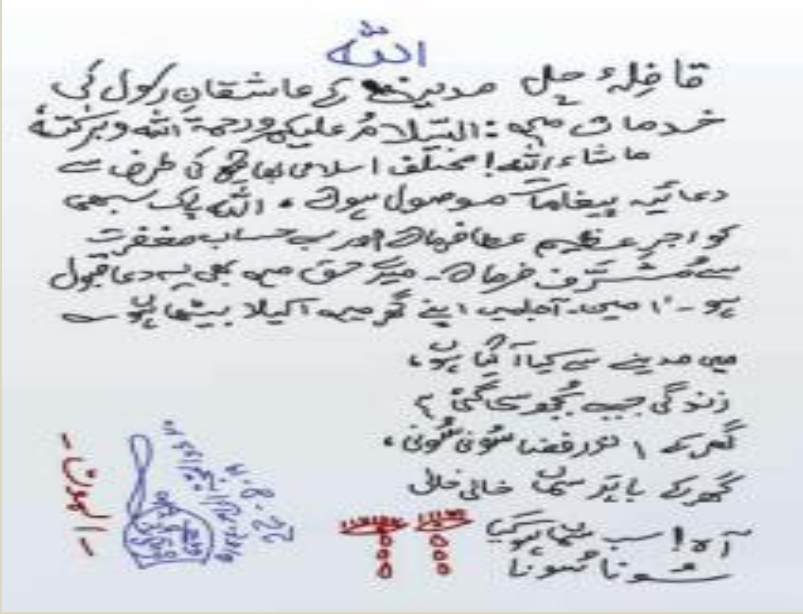 اللہ
قافلۂ چل مدینہ کے عاشقانِ رسول کی
خدمات میں: السّلامُ علیکم ورحمۃ اللہ وبرکتہٗ
ماشاءاللہ! مختلف اسلامی بھائیوں کی طرف سے
دعائیہ پیغامات موصول ہوئے، اللہ پاک سبھی
کو اجرِ عظیم عطا فرمائے اور بے حساب مغفرت
سے مُشرَّف فرمائے۔ میرے حق میں بھی یہ دعا قبول
ہو۔ اٰمین۔ ابھی میں اپنے گھر میں اکیلا بیٹھا ہوں
میں مدینے سے کیا آ گیا ہوں،
زندگی جیسے بُجھ سی گئی ہے
گھر کے اندر فضا سُونی سُونی،
گھر کے باہر سماں خالی خالی
آہ! سب سماں ہو گیا
سُونا سُونا